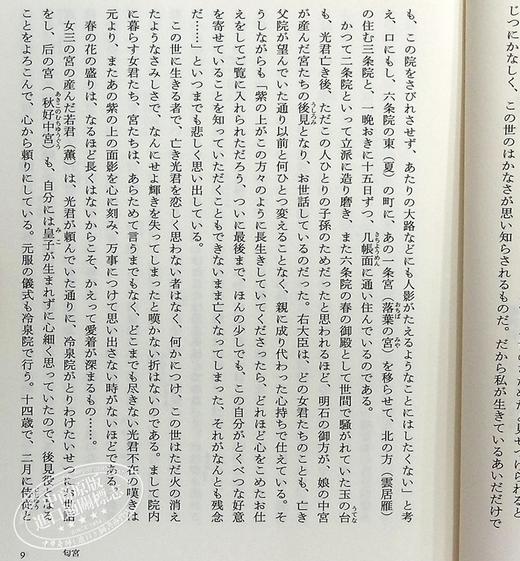 じつにかなしく、この世のはかなさが思い知らされるものだ。だから私が生きているあいだだけで
も、この院をさびれさせず、あたりの大路などにも人影がたえるようなことにはしたくない」と考
え、口にもし、六条院の東(夏)の町に、あの一条宮(落葉の宮)を移らせて、北の方(雲居雁)
の住む三条院と、一晩おきに十五日ずつ、几帳面に通い住んでいるのである。
かつて二条院といって立派に造り磨き、また六条院の春の御殿として世間で騒がれていた玉の台
も、光君亡き後、ただこの人ひとりの子孫のためだったと思われるほど、明石の御方が、娘の中宮
が産んだ宮たちの後見となり、お世話しているのだった。右大臣は、どの女君たちのことも、亡き
父院が望んでいた通り以前と何ひとつ変えることなく、親に成り代わった心持ちで仕えている。そ
うしながらも「紫の上がこの方々のように長生きしていてくださったら、どれほど心をこめたお仕
えをしてご覧に入れられただろう、ついに最後まで、ほんの少しでも、この自分がとくべつな好意
を寄せていることを知っていただくこともできないまま亡くなってしまった、それがなんとも残念
だ……」といつまでも悲しく思い出している。
この世に生きる者で、亡き光君を恋しく思わない者はなく、何かにつけ、この世はただ火の消え
たようなさみしさで、なんにせよ輝きを失ってしまったと嘆かない折はないのである。まして院内
に暮らす女君たち、宮たちは、あらためて言うまでもなく、どこまでも尽きない光君不在の嘆きは
元より、またあの紫の上の面影を心に刻み、万事につけて思い出さない時がないほどである。
春の花の盛りは、なるほど長くはないからこそ、かえって愛着が深まるもの……。
女三の宮の産んだ若君(薫)は、光君が頼んでいた通りに、冷泉院がとりわけたいせつにお世話
をし、后の宮(秋好中宮)も、自分には皇子が生まれずに心細く思っていたので、後見役となる
ことをよろこんで、心から頼りにしている。元服の儀式も冷泉院で行う。十四歳で、二月に侍従と
9 匂宮